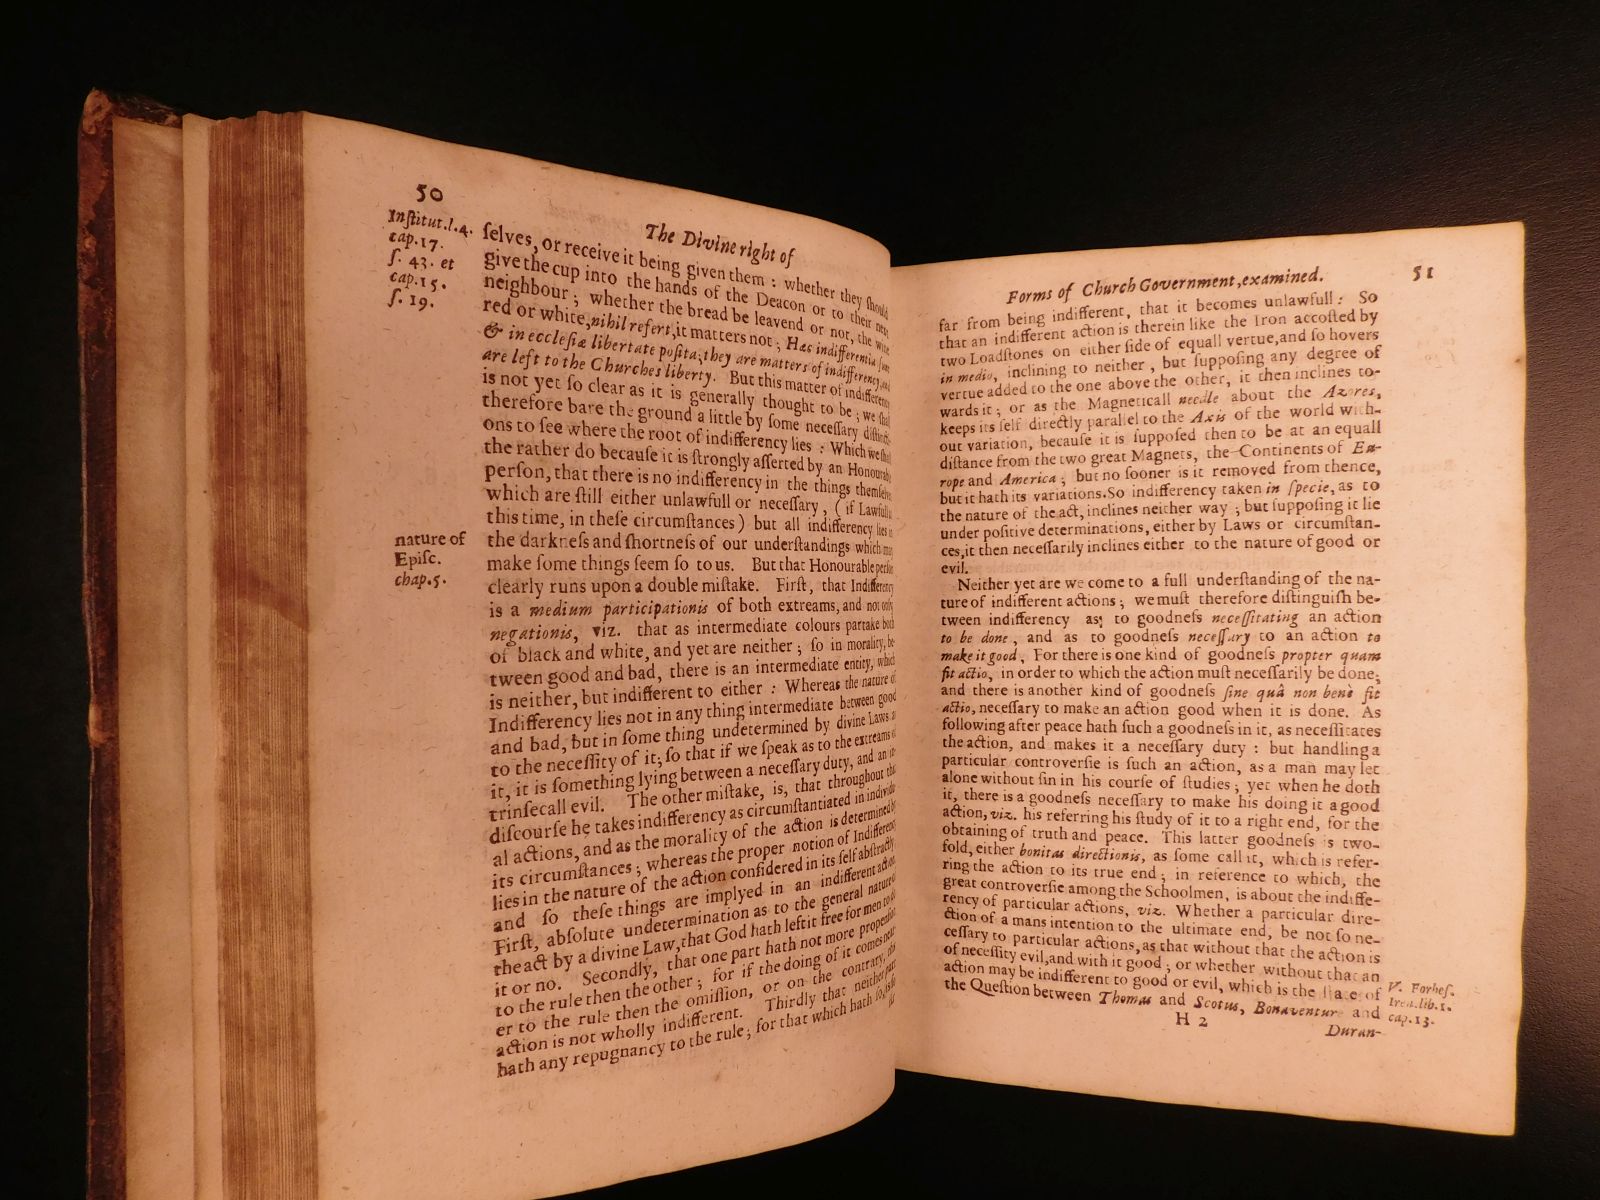 50
The Divine right of
Institut.l.4.
cap.17.
ſ. 43. et
cap.15.
ſ. 19.
ſelves, or receive it being given them : whether they ſhould
give the cup into the hands of the Deacon or to their next
neighbour ; whether the bread be leavend or not, the wine
red or white, nihil refert, it matters not ; Hæc indifferentia ſunt
& in eccleſiæ libertate poſita; they are matters of indifferency, and
are left to the Churches liberty. But this matter of indifferency
is not yet ſo clear as it is generally thought to be ; we ſhall
therefore bare the ground a little by ſome neceſſary diſtincti-
ons to ſee where the root of indifferency lies : Which we ſhall
the rather do becauſe it is ſtrongly aſſerted by an Honourable
perſon, that there is no indifferency in the things themſelves
which are ſtill either unlawfull or neceſſary, ( if Lawfull
this time, in theſe circumſtances ) but all indifferency lies in
the darkneſs and ſhortneſs of our underſtandings which may
make ſome things ſeem ſo to us. But that Honourable perſon
clearly runs upon a double miſtake. Firſt, that Indifferency
is a medium participationis of both extreams, and not only
negationis, viz. that as intermediate colours partake both
of black and white, and yet are neither ; ſo in morality, be-
tween good and bad, there is an intermediate entity, which
is neither, but indifferent to either : Whereas the nature of
Indifferency lies not in any thing intermediate between good
and bad, but in ſome thing undetermined by divine Laws as
to the neceſſity of it; ſo that if we ſpeak as to the extreams of
it, it is ſomething lying between a neceſſary duty, and an in-
trinſecall evil. The other miſtake, is, that throughout that
diſcourſe he takes indifferency as circumſtantiated in individu-
al actions, and as the morality of the action is determined by
its circumſtances ; whereas the proper notion of Indifferency
lies in the nature of the action conſidered in its ſelf abſtractly,
and ſo theſe things are implyed in an indifferent action.
Firſt, abſolute undetermination as to the general nature of
the act by a divine Law, that God hath left it free for men to do
it or no. Secondly, that one part hath not more propenſion
to the rule then the other ; for if the doing of it comes near-
er to the rule then the omiſſion, or on the contrary, this
action is not wholly indifferent. Thirdly that neither part
hath any repugnancy to the rule ; for that which hath ſo, is ſo
nature of
Epiſc.
chap.5.
Forms of Church Government, examined.
51
far from being indifferent, that it becomes unlawfull : So
that an indifferent action is therein like the Iron accoſted by
two Loadſtones on either ſide of equall vertue, and ſo hovers
in medio, inclining to neither , but ſuppoſing any degree of
vertue added to the one above the other, it then inclines to-
wards it ; or as the Magneticall needle about the Azores,
keeps its ſelf directly parallel to the Axis of the world with-
out variation, becauſe it is ſuppoſed then to be at an equall
diſtance from the two great Magnets, the Continents of Eu-
rope and America ; but no ſooner is it removed from thence,
but it hath its variations. So indifferency taken in ſpecie, as to
the nature of the act, inclines neither way ; but ſuppoſing it lie
under poſitive determinations, either by Laws or circumſtan-
ces, it then neceſſarily inclines either to the nature of good or
evil.
Neither yet are we come to a full underſtanding of the na-
ture of indifferent actions ; we muſt therefore diſtinguiſh be-
tween indifferency as to goodneſs neceſſitating an action
to be done , and as to goodneſs neceſſary to an action to
make it good, For there is one kind of goodneſs propter quam
fit actio, in order to which the action muſt neceſſarily be done;
and there is another kind of goodneſs ſine quâ non benè fit
actio, neceſſary to make an action good when it is done. As
following after peace hath ſuch a goodneſs in it, as neceſſitates
the action, and makes it a neceſſary duty : but handling a
particular controverſie is ſuch an action, as a man may let
alone without ſin in his courſe of ſtudies ; yet when he doth
it, there is a goodneſs neceſſary to make his doing it a good
action, viz. his referring his ſtudy of it to a right end, for the
obtaining of truth and peace. This latter goodneſs is two-
fold, either bonitas directionis, as ſome call it, which is refer-
ring the action to its true end ; in reference to which, the
great controverſie among the Schoolmen, is about the indiffe-
rency of particular actions, viz. Whether a particular dire-
ction of a mans intention to the ultimate end, be not ſo ne-
ceſſary to particular actions, as that without that the action is
of neceſſity evil, and with it good ; or whether without that an
action may be indifferent to good or evil, which is the ſtate of
the Queſtion between Thomas and Scotus, Bonaventure and
V. Forbeſ.
Iren.lib.1.
cap.13.
H 2
Duran-